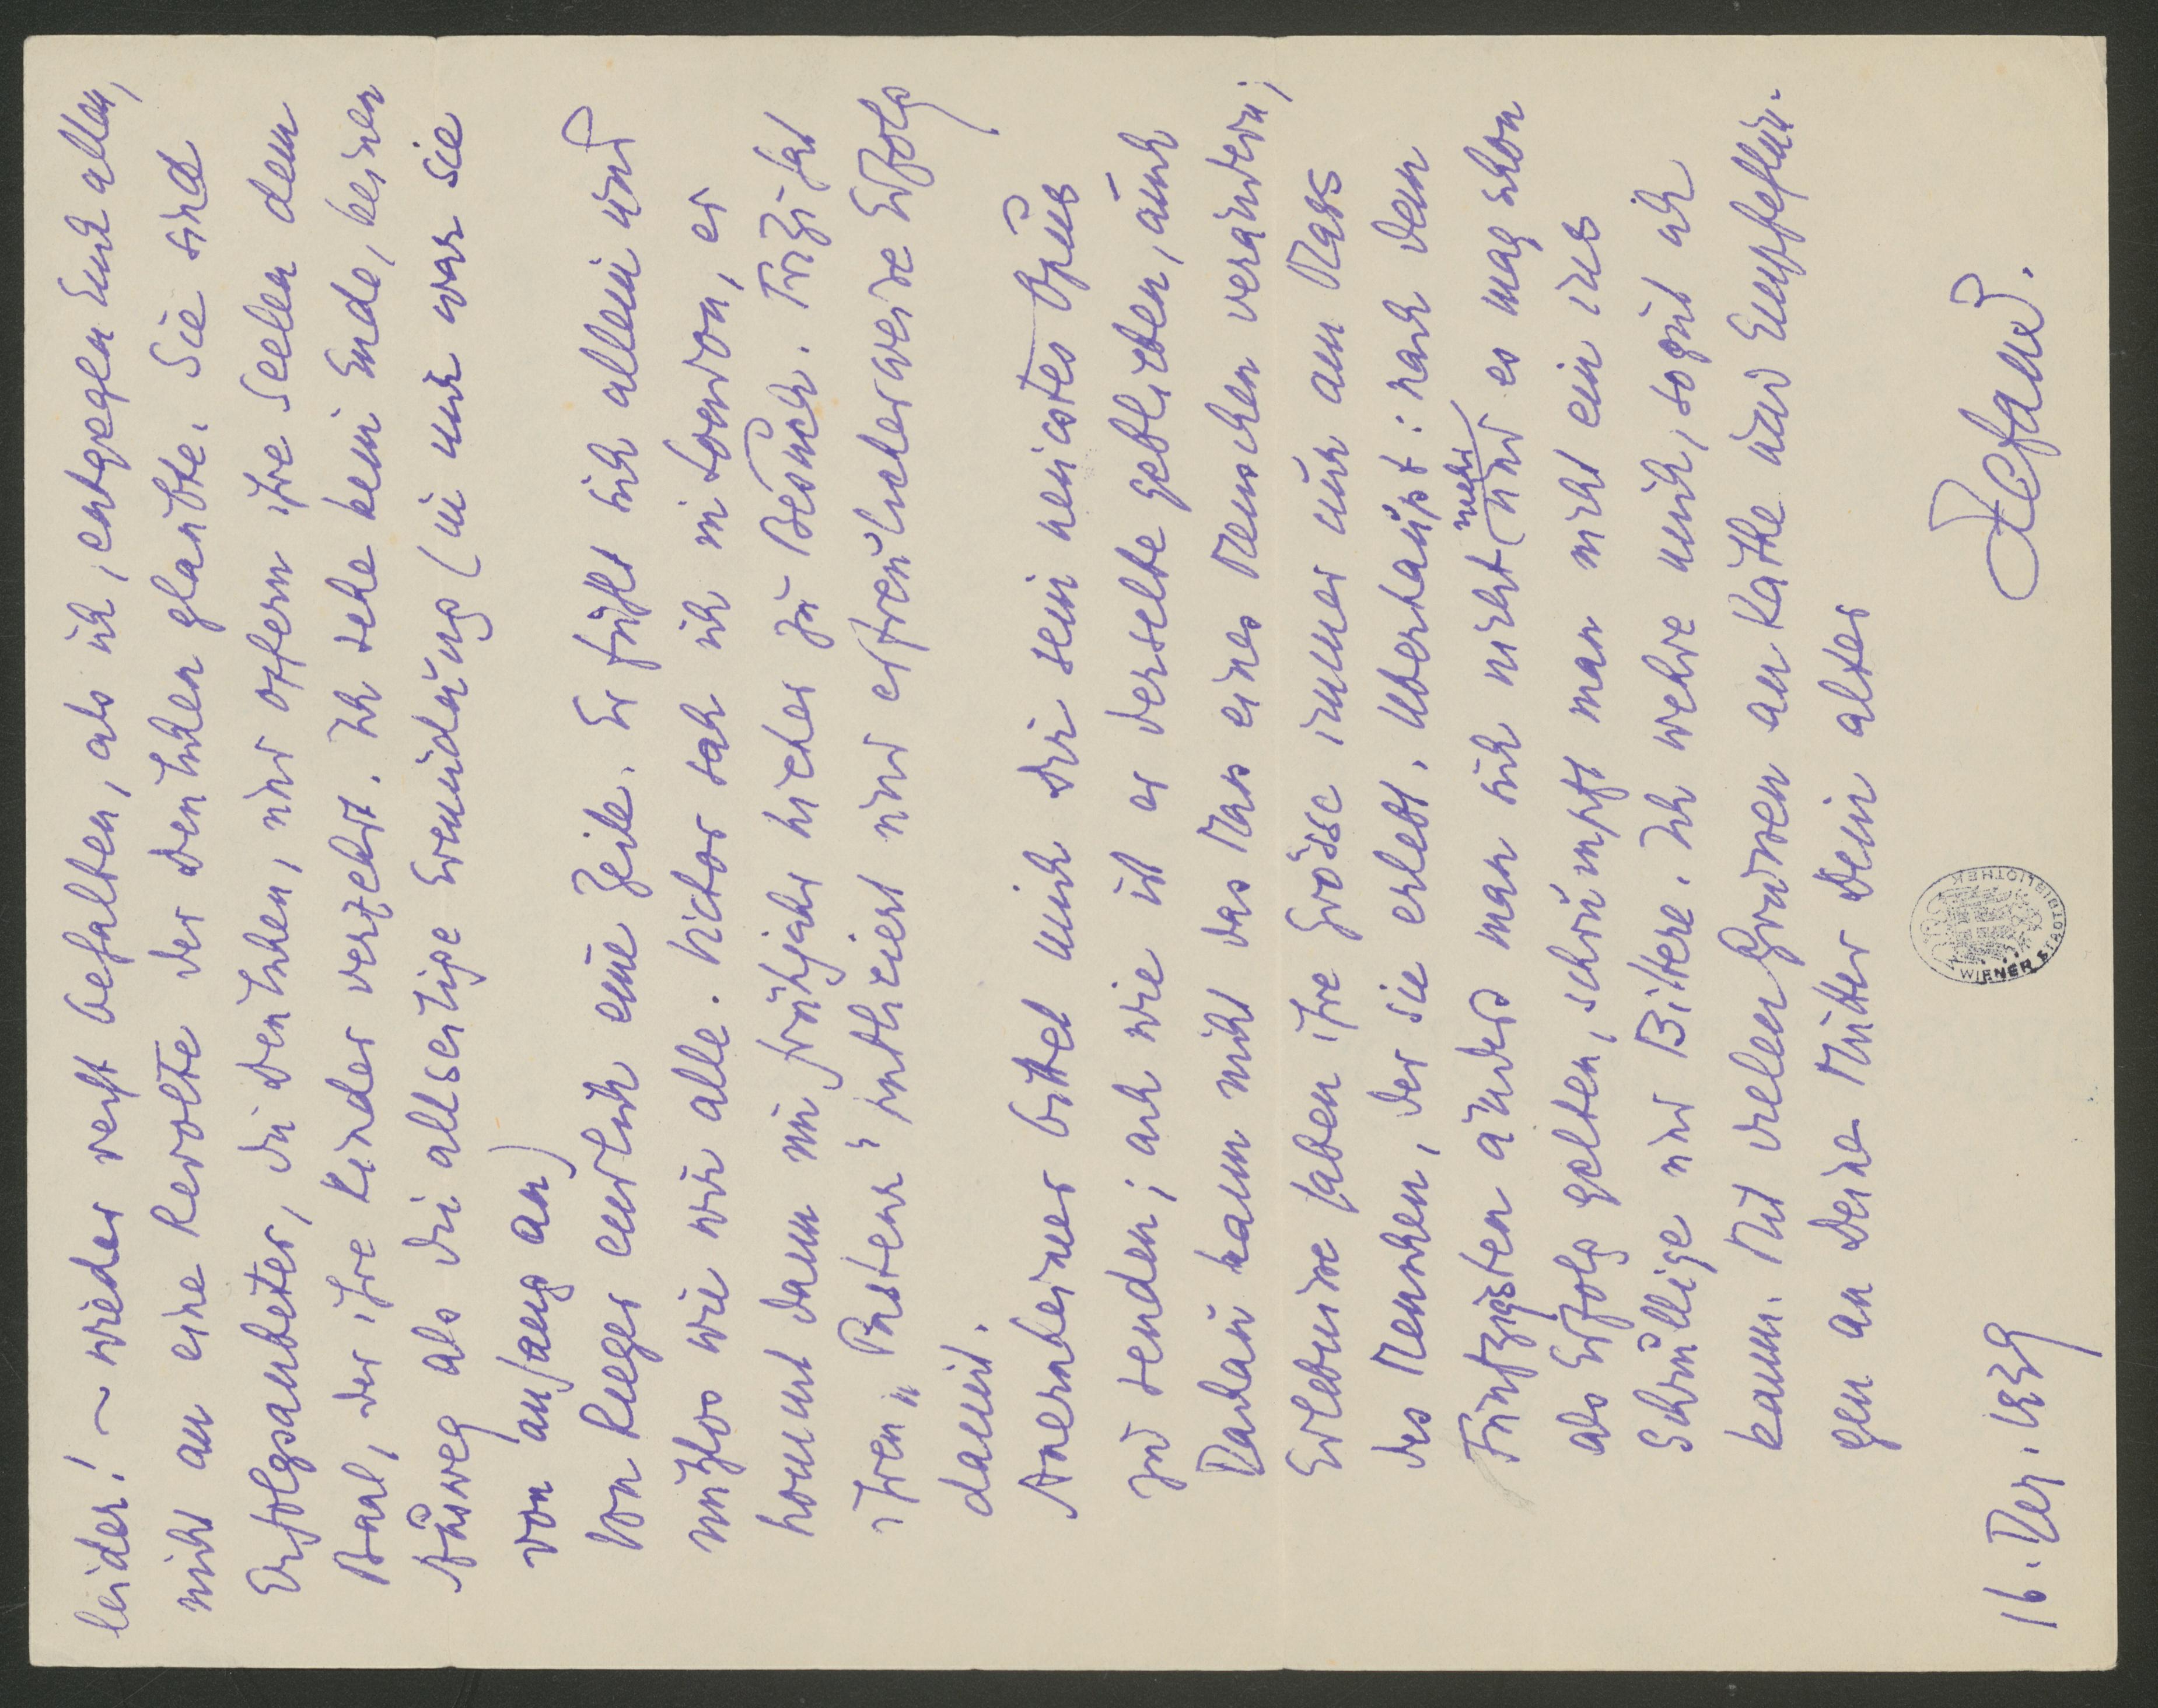 leider! – wieder recht befalten, als ich, entgegen Euch allen,
nicht an eine Revolte der Deutschen glaubte. Sie sind
Erfolgsanbeter, die Deutschen, und opfern ihre Seelen dem
Baal, der ihre Kinder verzehrt. Ich sehe kein Ende, keinen
Ausweg als die allseitige Ermüdung (in mir war sie
von anfang an)
Von Rieger endlich eine Zeile. Er fühlt sich allein und
nutzlos wie wir alle. Victor sah ich in London, er
kommt dann im Frühjahr hieher zu Besuch. Fritzi hat
ihren „Pasteur" publiciert und erfreulicherweise Erfolg
damit.
Arernheiner bittet mich Dir sein neuestes Opus
zu senden; ach wie ist er derselbe geblieben, auch
Dachau kann nicht das Mass eines Menschen verändern;
Erlebnisse haben ihre Grösse immer nur am Mass
des Menschen, der sie erlebt. Überhaupt: nach dem
Fünfzigsten ändert man sich nicht mehr und es mag schon
als Erfolg gelten, schrumpft man nicht ein ins
Schrullige und Bittere. Ich wehre mich, so gut ich
kann. Mit vielen Grüssen an Käthe und Empfehlun-
gen an Deine Mutter Dein alter
Stefan.
16. Dez. 1939
WIENER STADTBIBLIOTHEK